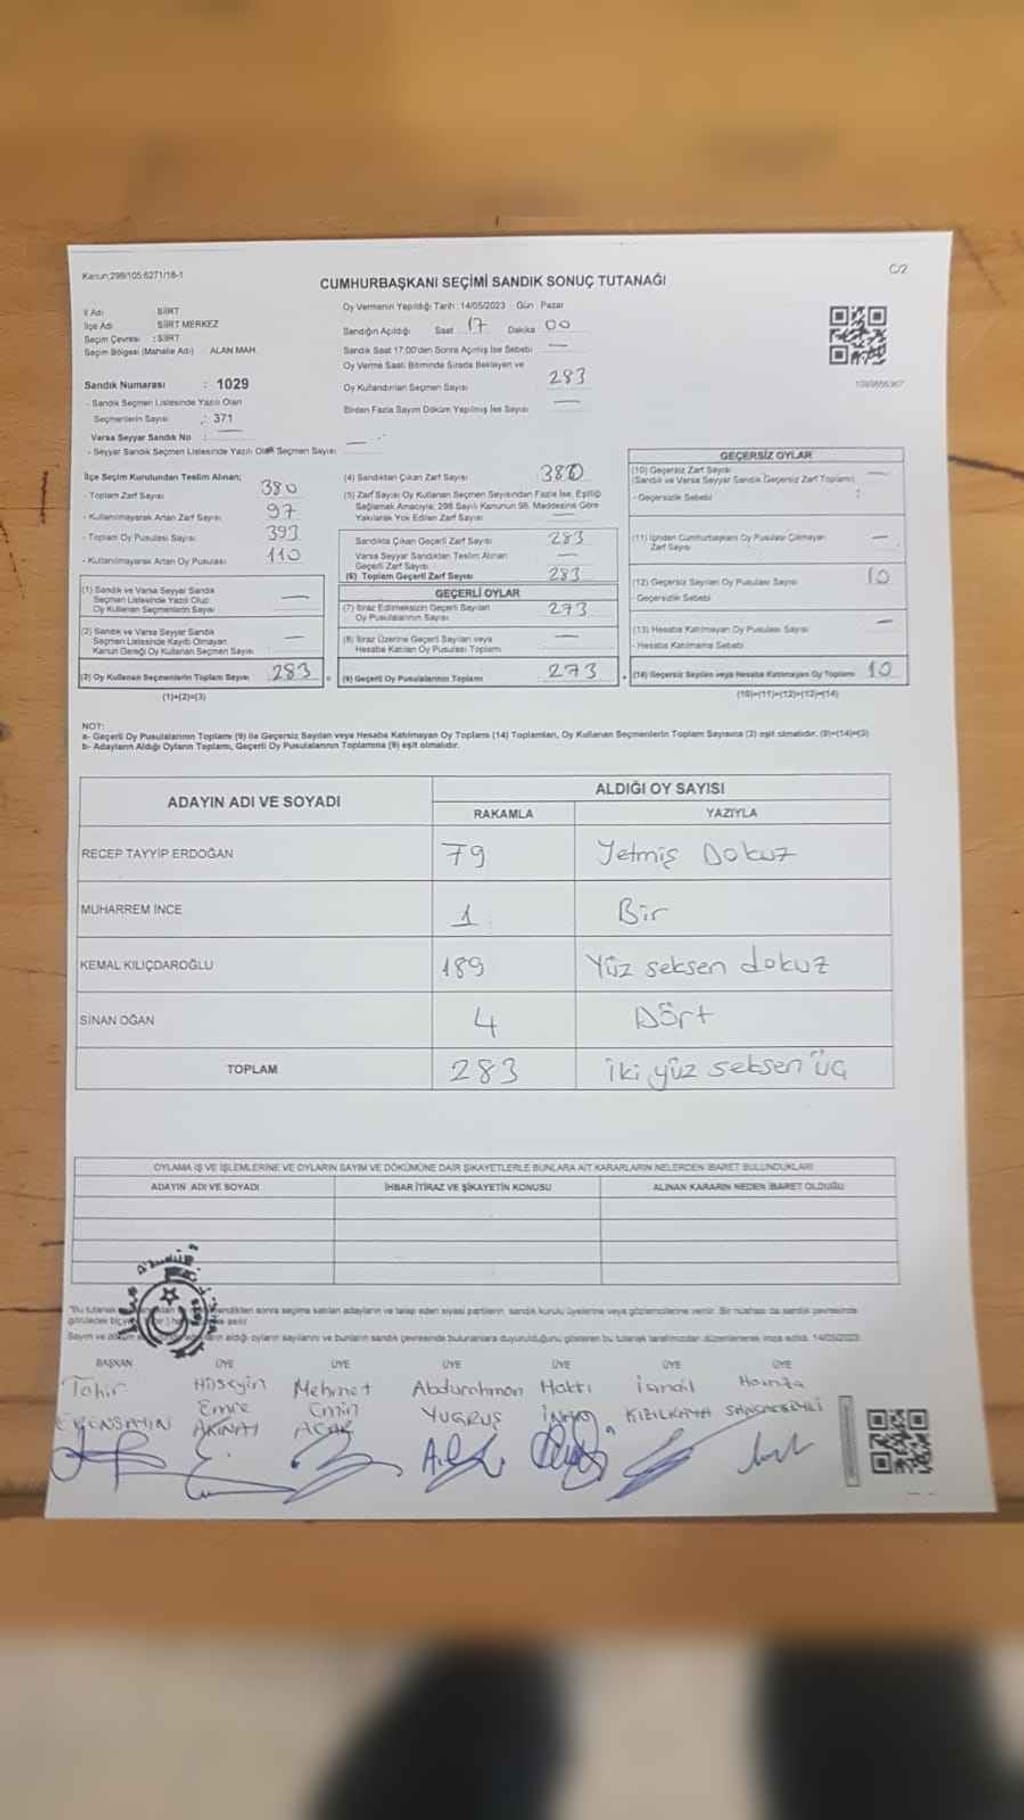 Kanun:298/105 6271/18-1
C/2
CUMHURBAŞKANI SEÇİMİ SANDIK SONUÇ TUTANAĞI
İl Adı SİİRT
İlçe Adı SİİRT MERKEZ
Seçim Çevresi : SİİRT
Seçim Bölgesi (Mahalle Adı) ALAN MAH.
Sandık Numarası : 1029
- Sandık Seçmen Listesinde Yazılı Olan
Seçmenlerin Sayısı : 371
Varsa Seyyar Sandık No
- Seyyar Sandık Seçmen Listesinde Yazılı Olan Seçmen Sayısı
Oy Vermenin Yapıldığı Tarih :14/05/2023 - Gün : Pazar
Sandığın Açıldığı Saat 17 Dakika 00
Sandık Saat 17:00'den Sonra Açılmış İse Sebebi
Oy Verme Saati Bitiminde Sırada Bekleyen ve
Oy Kullandırılan Seçmen Sayısı 283
Birden Fazla Sayım Döküm Yapılmış İse Sayısı
İlçe Seçim Kurulundan Teslim Alınan;
- Toplam Zarf Sayısı 380
- Kullanılmayarak Artan Zarf Sayısı 97
- Toplam Oy Pusulası Sayısı 393
- Kullanılmayarak Artan Oy Pusulası 110
(1) Sandık ve Varsa Seyyar Sandık
Seçmen Listesinde Yazılı Olup
Oy Kullanan Seçmenlerin Sayısı
(2) Sandık ve Varsa Seyyar Sandık
Seçmen Listesinde Kayıtlı Olmayan
Kanun Gereği Oy Kullanan Seçmen Sayısı
(3) Oy Kullanan Seçmenlerin Toplam Sayısı 283
(1)+(2)=(3)
(4) Sandıktan Çıkan Zarf Sayısı 380
(5) Zarf Sayısı Oy Kullanan Seçmen Sayısından Fazla İse, Eşitliği
Sağlamak Amacıyla; 298 Sayılı Kanunun 98. Maddesine Göre
Yakılarak Yok Edilen Zarf Sayısı
Sandıkta Çıkan Geçerli Zarf Sayısı 283
Varsa Seyyar Sandıktan Teslim Alınan
Geçerli Zarf Sayısı
(6) Toplam Geçerli Zarf Sayısı 283
GEÇERLİ OYLAR
(7) İtiraz Edilmeksizin Geçerli Sayılan
Oy Pusulasının Sayısı 273
(8) İtiraz Üzerine Geçerli Sayılan veya
Hesaba Katılan Oy Pusulası Toplamı
(9) Geçerli Oy Pusulalarının Toplamı 273
GEÇERSİZ OYLAR
(10) Geçersiz Zarf Sayısı
(Sandık ve Varsa Seyyar Sandık Geçersiz Zarf Toplamı)
- Geçersizlik Sebebi :
(11) İçinden Cumhurbaşkanı Oy Pusulası Çıkmayan
Zarf Sayısı
(12) Geçersiz Sayılan Oy Pusulası Sayısı 10
- Geçersizlik Sebebi
(13) Hesaba Katılmayan Oy Pusulası Sayısı
- Hesaba Katılmama Sebebi
(14) Geçersiz Sayılan veya Hesaba Katılmayan Oy Toplamı 10
(10)+(11)+(12)+(13)=(14)
NOT:
a- Geçerli Oy Pusulalarının Toplamı (9) ile Geçersiz Sayılan veya Hesaba Katılmayan Oy Toplamı (14) Toplamları, Oy Kullanan Seçmenlerin Toplam Sayısına (3) eşit olmalıdır. (9)+(14)=(3)
b- Adayların Aldığı Oyların Toplamı, Geçerli Oy Pusulalarının Toplamına (9) eşit olmalıdır.
ADAYIN ADI VE SOYADI
ALDIĞI OY SAYISI
RAKAMLA YAZIYLA
RECEP TAYYİP ERDOĞAN 79 Yetmiş Dokuz
MUHARREM İNCE 1 Bir
KEMAL KILIÇDAROĞLU 189 Yüz seksen dokuz
SİNAN OĞAN 4 Dört
TOPLAM 283 iki yüz seksen üç
OYLAMA İŞ VE İŞLEMLERİNE VE OYLARIN SAYIM VE DÖKÜMÜNE DAİR ŞİKAYETLERLE BUNLARA AİT KARARLARIN NELERDEN İBARET BULUNDUKLARI
ADAYIN ADI VE SOYADI İHBAR İTİRAZ VE ŞİKAYETİN KONUSU ALINAN KARARIN NEDEN İBARET OLDUĞU
"Bu tutanak sandıkten sonra seçime katılan adayların ve talep eden siyasi partilerin, sandık kurulu üyelerine veya gözlemcilerine verilir. Bir nüshası da sandık çevresinde
görülecek bir
Sayım ve döküm aldığı oyların sayılarını ve bunların sandık çevresinde bulunanlara duyurulduğunu gösteren bu tutanak tarafımızdan düzenlenerek imza edildi. 14/05/2023
BAŞKAN ÜYE ÜYE ÜYE ÜYE ÜYE ÜYE
Tahir Hüseyin Mehmet Abdurahman Hakkı İsmail Hamza
Emre Emin YUGRUŞ KIZILKAYA